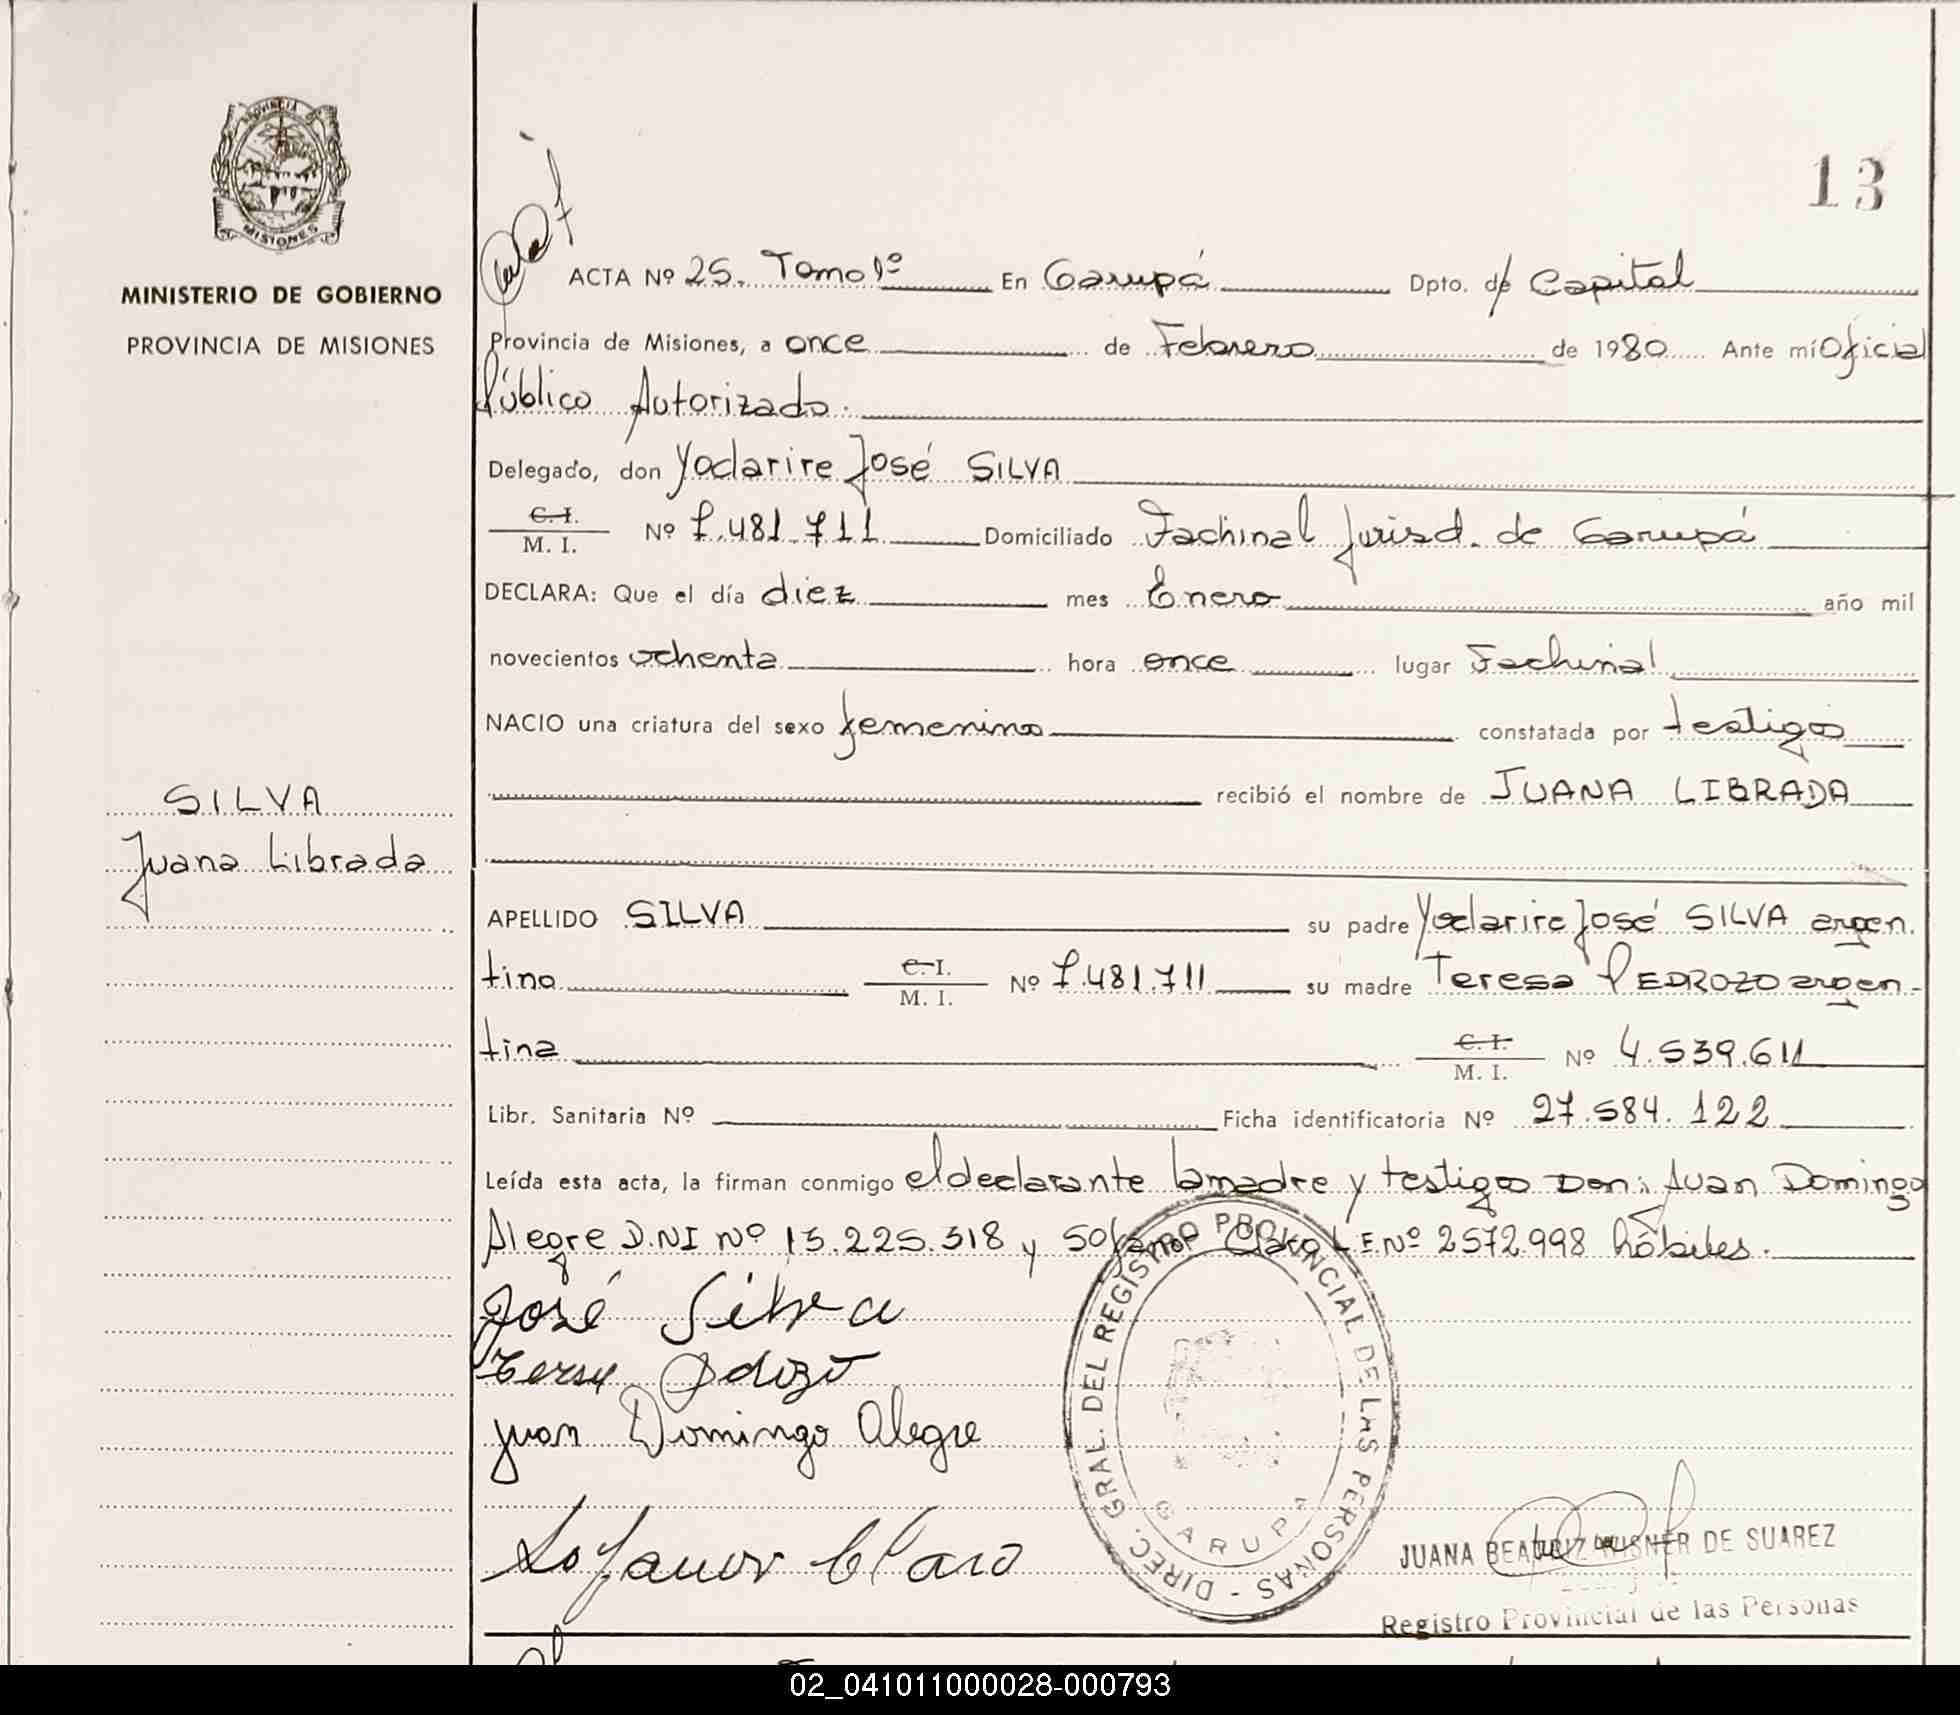 PROVINCIA DE
MISIONES
MINISTERIO DE GOBIERNO
PROVINCIA DE MISIONES
SILVA
Juana Librada
13
ACTA Nº 25. Tomo 1º En Garupá Dpto. de Capital
Provincia de Misiones, a once de Febrero de 1980 Ante mí Oficial
Público Autorizado.
Delegado, don Yodarire José SILVA
C. I.
M. I. Nº 7.481.711 Domiciliado Fachinal Jurisd. de Garupá
DECLARA: Que el día diez mes Enero año mil
novecientos ochenta hora once lugar Fachinal
NACIO una criatura del sexo femenino constatada por testigos
recibió el nombre de JUANA LIBRADA
APELLIDO SILVA su padre Yodarire José SILVA argen.
tino C. I. M. I. Nº 7.481.711 su madre Teresa PEDROZO argen-
tina C. I. M. I. Nº 4.539.611
Libr. Sanitaria Nº Ficha identificatoria Nº 27.584.122
Leída esta acta, la firman conmigo el declarante la madre y testigos Don: Juan Domingo
Alegre D.NI Nº 13.225.318 y Sofanor Claro L.E.Nº 2572.998 hábiles.
José Silva
Juan Domingo Alegre
Sofanor Claro
DIREC. GRAL. DEL REGISTRO PROVINCIAL DE LAS PERSONAS -
GARUPA
JUANA BEATRIZ WISNER DE SUAREZ
Registro Provincial de las Personas
02_041011000028-000793